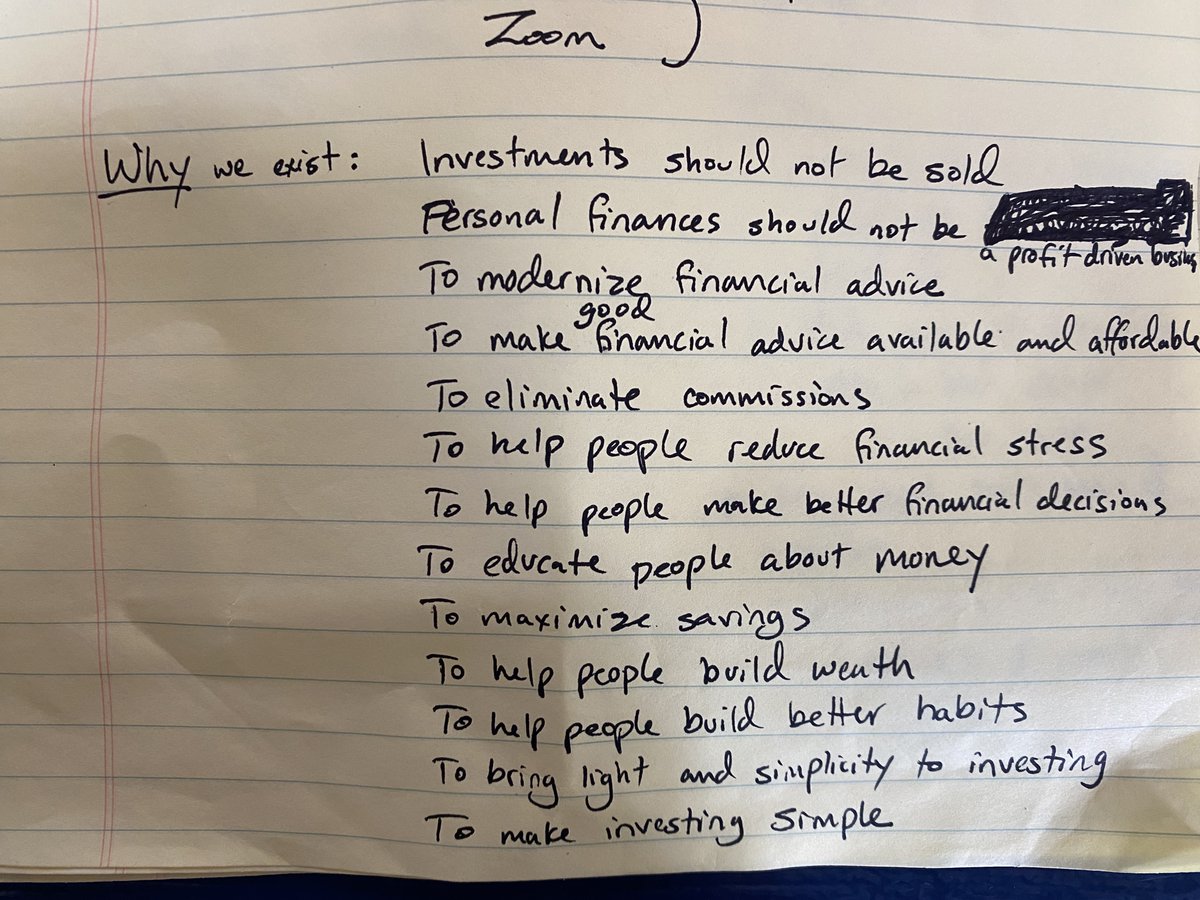 Zoom )
Why we exist: Investments should not be sold
Personal finances should not be
a profit driven business
To modernize financial advice
good
To make financial advice available and affordable
To eliminate commissions
To help people reduce financial stress
To help people make better financial decisions
To educate people about money
To maximize savings
To help people build weath
To help people build better habits
To bring light and simplicity to investing
To make investing simple